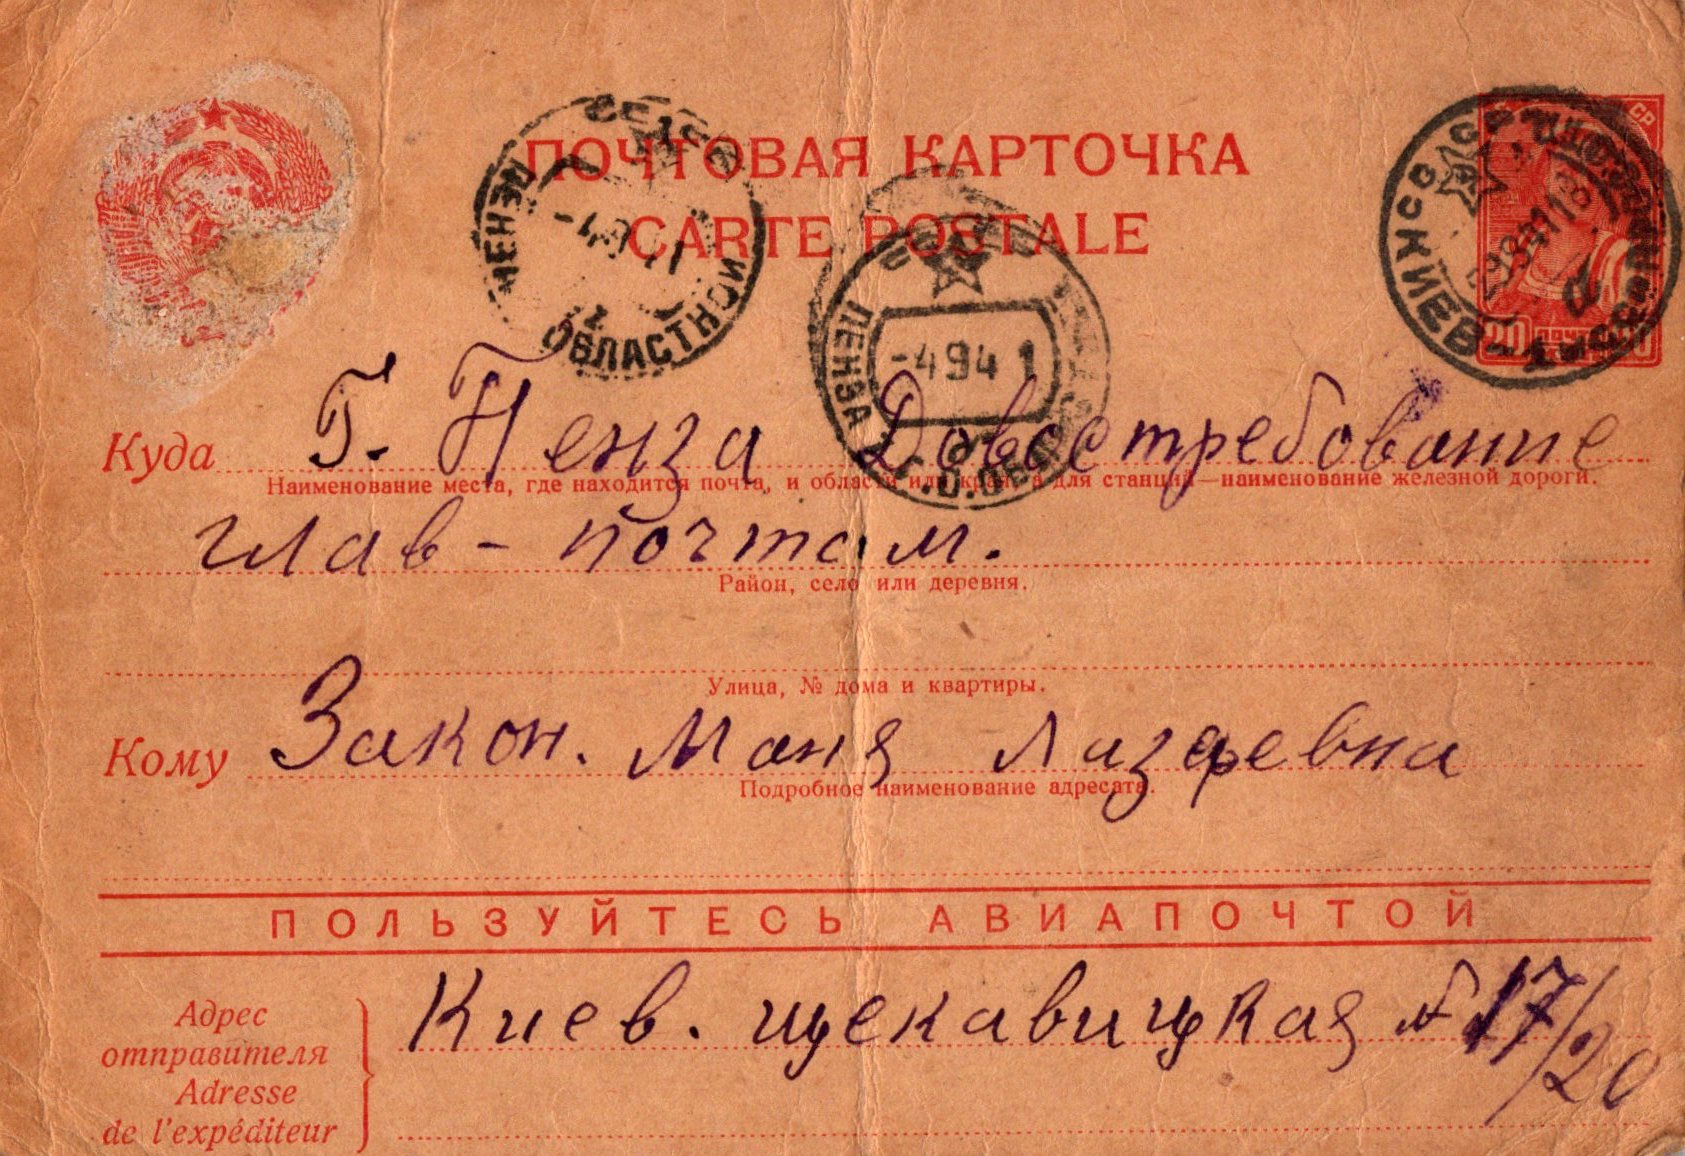 ПОЧТОВАЯ КАРТОЧКА
CARTE POSTALE
ПЕНЗА
ОБЛАСТНОЙ
-4 9 41
ПЕНЗА
-4 9 41
КИЕВ
29 9 41 18
20 ПОЧТА
Куда Г. Пенза Довостребование
Наименование места, где находится почта, и области или края, а для станций—наименование железной дороги.
глав-почтам.
Район, село или деревня.
Улица, № дома и квартиры.
Кому Закон. Маня Лазаревна
Подробное наименование адресата.
ПОЛЬЗУЙТЕСЬ АВИАПОЧТОЙ
Адрес отправителя
Adresse de l'expéditeur
Киев. щекавицкая № 17/20